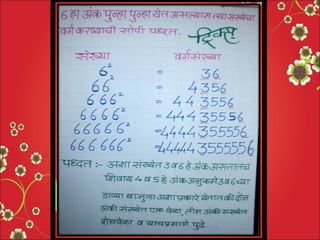 6 हा अंक पुन्हा पुन्हा येत असल्यास त्या संख्येचा
वर्ग करण्याची सोपी पध्दत. ट्रिक्स
संख्या वर्गसंख्या
6² = 36
66² = 4356
666² = 443556
6666² = 44435556
66666² = 4444355556
666666² = 444443555556
पध्दत :- अशा संख्येत 3 व 6 हे अंक असतातच
शिवाय 4 व 5 हे अंक अनुक्रमे 3 व 6 च्या
डाव्या बाजुला अशा प्रकारे येतात की दोन
अंकी संख्येत एक वेळा, तीन अंकी संख्येत
दोनवेळा व याचप्रमाणे पुढे ....